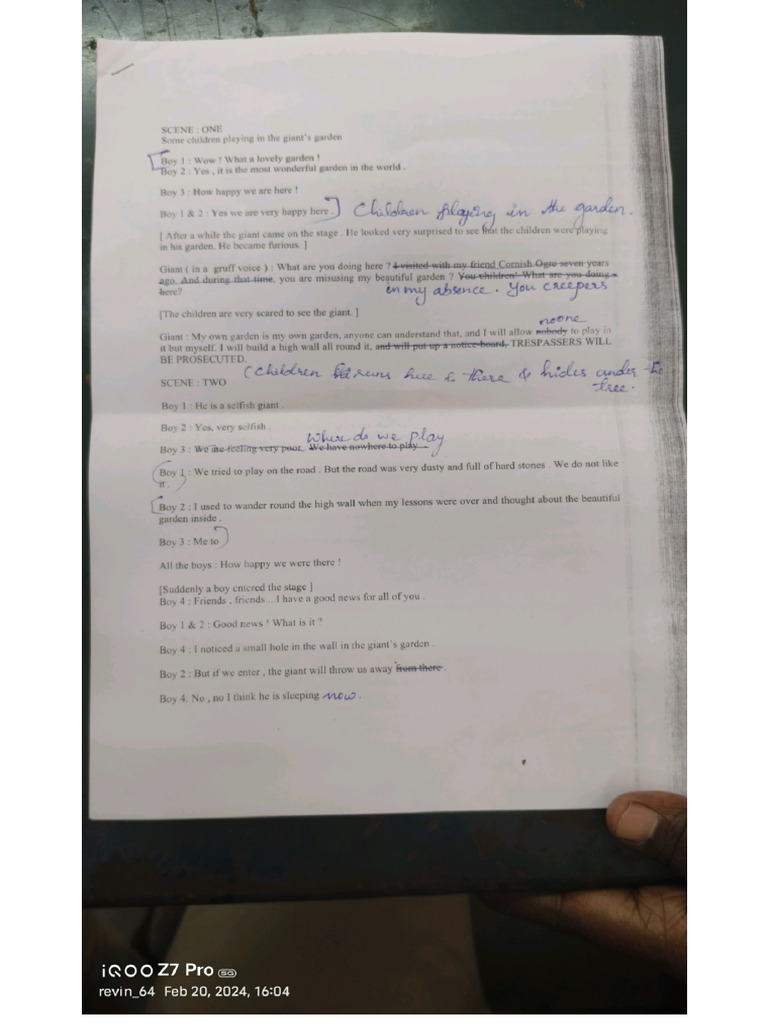 SCENE : ONE
Some children playing in the giant's garden
Boy 1 : Wow ! What a lovely garden !
Boy 2 : Yes , it is the most wonderful garden in the world .
Boy 3 : How happy we are here !
Boy 1 & 2 : Yes we are very happy here . Children playing in the garden.
[ After a while the giant came on the stage . He looked very surprised to see that the children were playing
in his garden. He became furious. ]
Giant ( in a gruff voice ) : What are you doing here ? I visited with my friend Cornish Ogre seven years
ago. And during that time, you are misusing my beautiful garden ? You children! What are you doing
here? in my absence. You creepers
[The children are very scared to see the giant. ]
noone
Giant : My own garden is my own garden, anyone can understand that, and I will allow nobody to play in
it but myself. I will build a high wall all round it, and will put up a notice-board, TRESPASSERS WILL
BE PROSECUTED.
(Children runs here & there & hides under the
tree.
SCENE : TWO
Boy 1 : He is a selfish giant .
Boy 2 : Yes, very selfish .
Where do we play
Boy 3 : We are feeling very poor. We have nowhere to play
Boy 1 : We tried to play on the road . But the road was very dusty and full of hard stones . We do not like
it .
Boy 2 : I used to wander round the high wall when my lessons were over and thought about the beautiful
garden inside .
Boy 3 : Me to
All the boys : How happy we were there !
[Suddenly a boy entered the stage ]
Boy 4 : Friends , friends ...I have a good news for all of you .
Boy 1 & 2 : Good news ! What is it ?
Boy 4 : I noticed a small hole in the wall in the giant's garden .
Boy 2 : But if we enter , the giant will throw us away from there .
Boy 4: No , no I think he is sleeping now.
iQOO Z7 Pro 5G
revin_64 Feb 20, 2024, 16:04